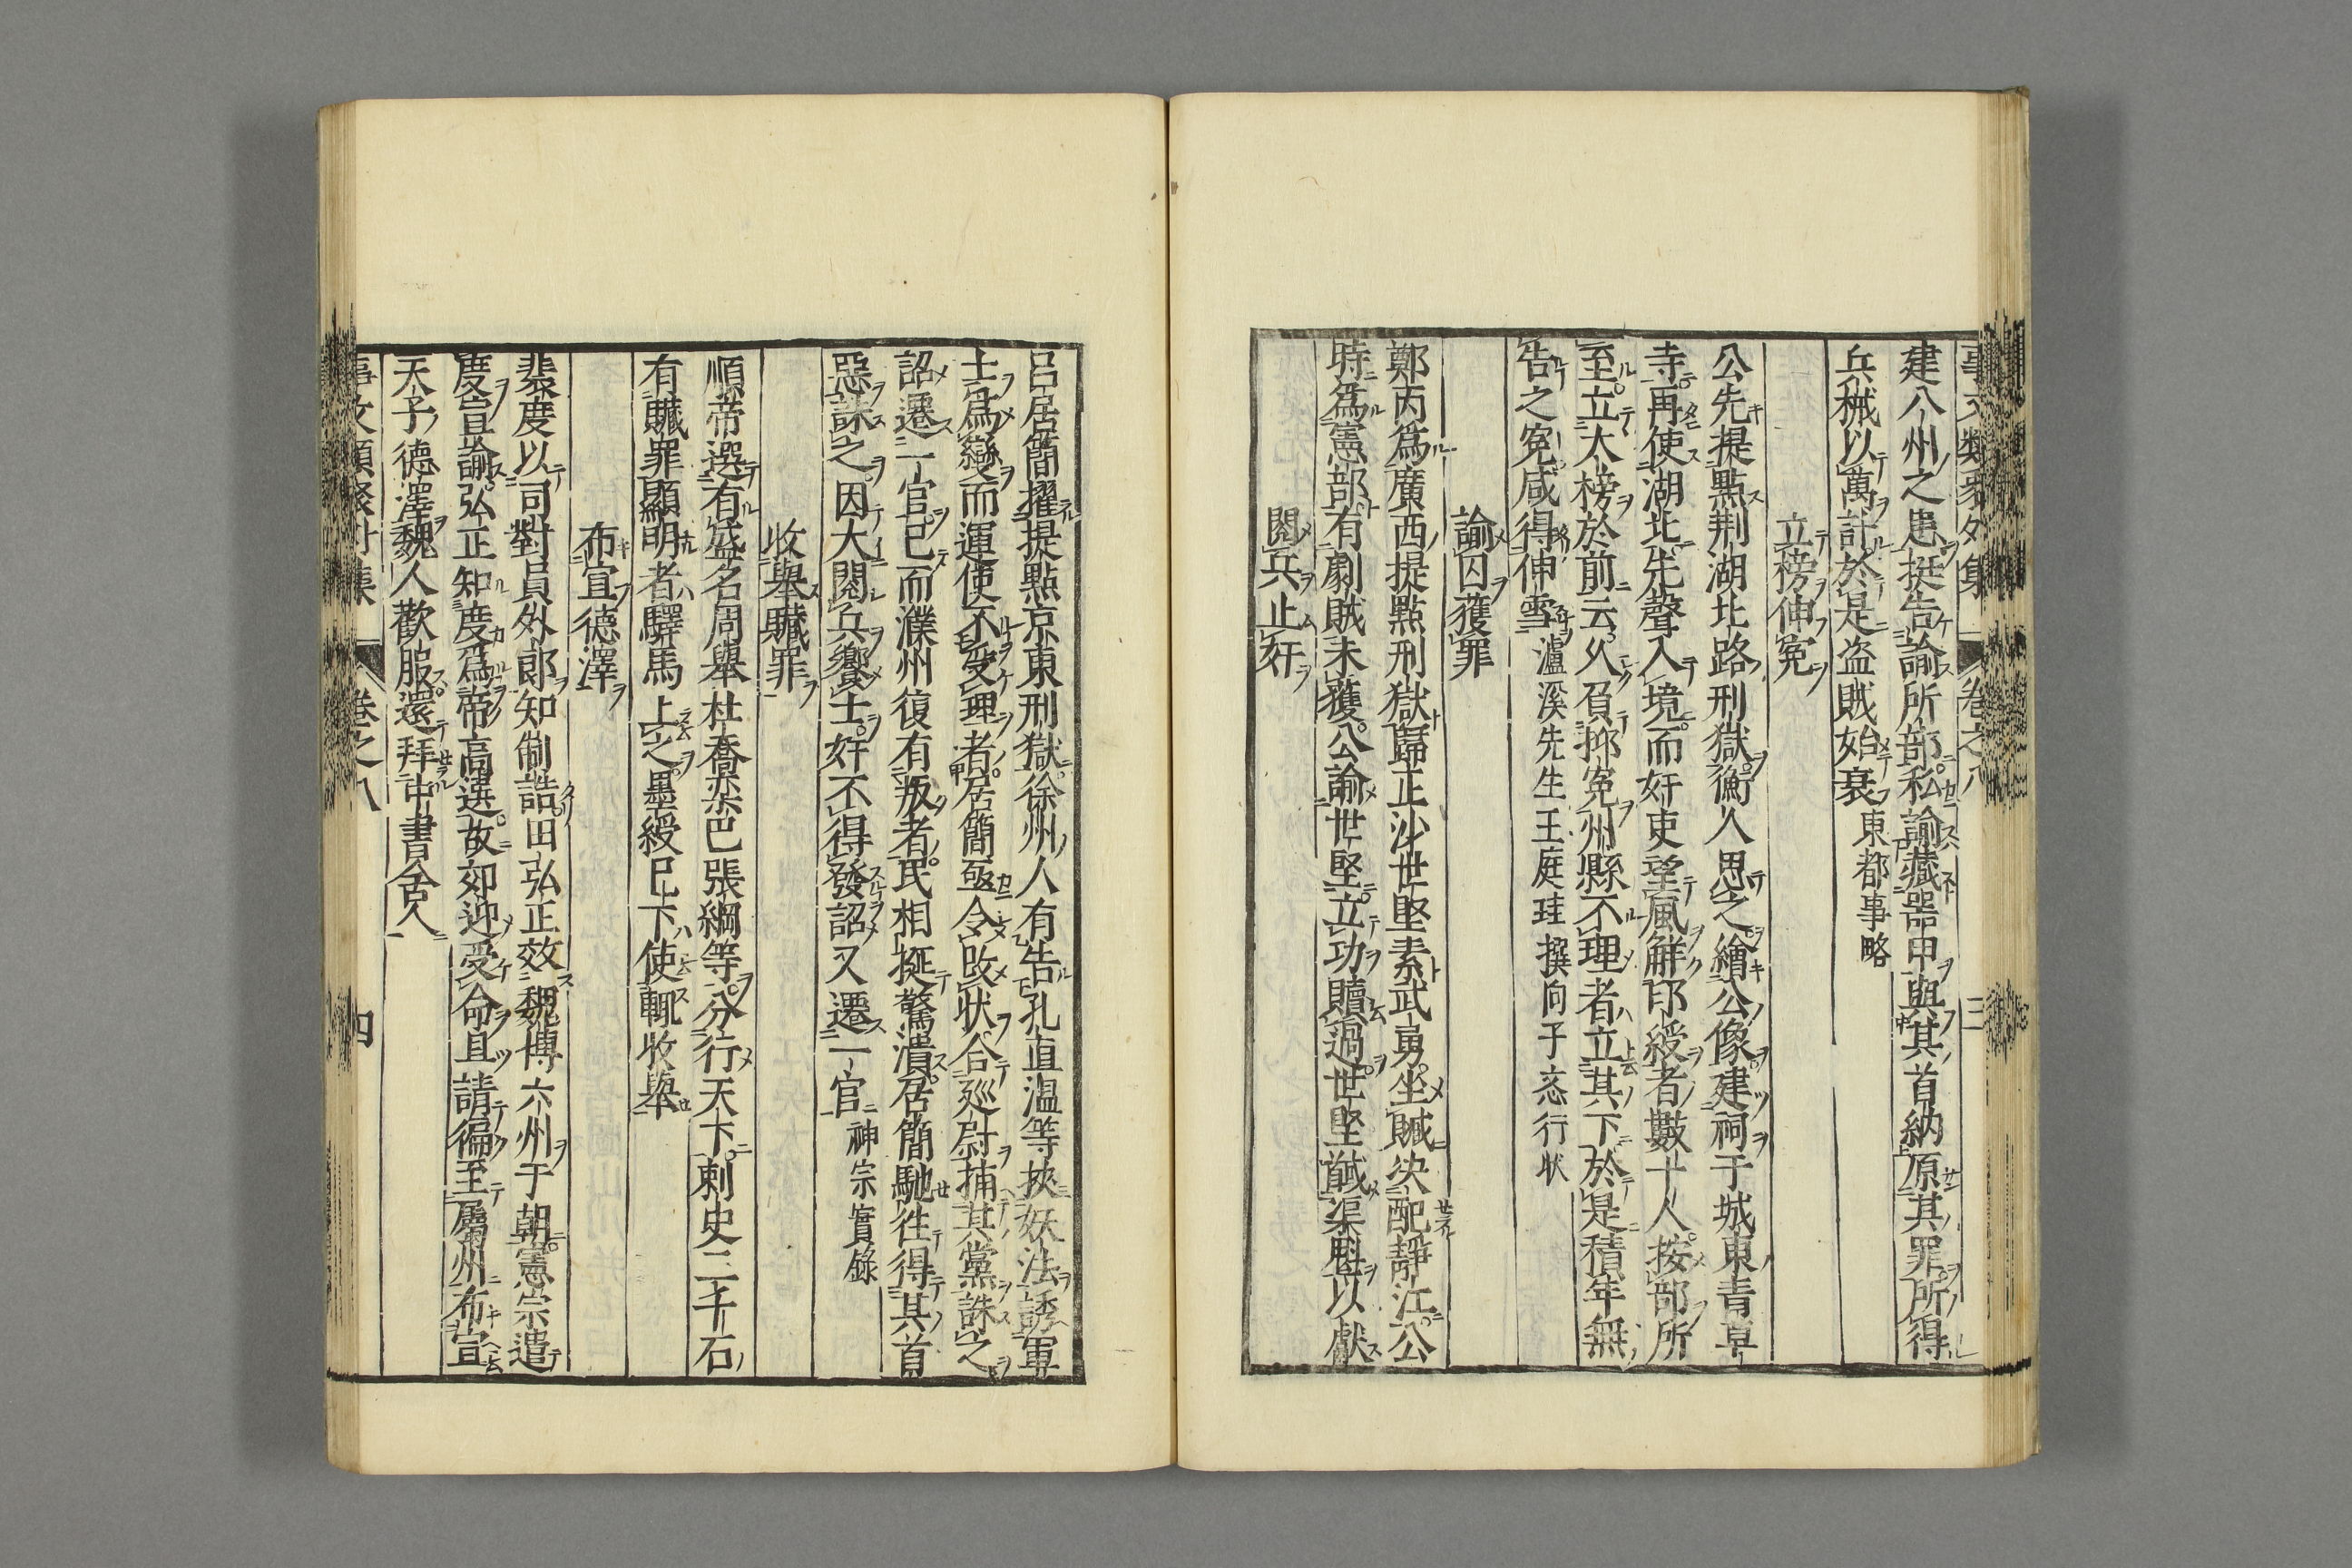 事文類聚外集 卷之八 三
建八州之患挺告諭所部私諭藏噐甲與其首納原其罪所得
兵械以萬計於是盗賊始衰 東都事略
立榜伸冤
公先提點荆湖北路刑獄衡人思之繪公像建祠于城東青草
寺再使湖北先聲入境而奸吏望風解印綬者數十人按部所
至立大榜於前云久負抑冤州縣不理者立其下於是積年無
告之冤咸得伸雪 瀘溪先生王庭珪撰向子忞行状
諭囚獲罪
鄭丙爲廣西提點刑獄歸正沙世堅素武勇坐贓决配靜江公
時爲憲部有劇賊未獲公諭世堅立功贖過世堅馘渠魁以獻
閱兵止奸
呂居簡擢提點京東刑獄徐州人有告孔直温等挾妖法誘軍
士爲變而運使不受理者居簡亟令改状合廵尉捕其黨誅之
詔遷一官已而濮州復有叛者民相挻驚潰居簡馳往得其首
惡誅之因大閱兵饗士奸不得發詔又遷一官 神宗實錄
收舉贓罪
順帝選有盛名周舉杜喬栾巴張綱等分行天下刺史二千石
有贓罪顯明者驛馬上之墨綬已下使輒收舉
布宣德澤
裴度以司封員外郎知制誥田弘正效魏博六州于朝憲宗遣
度宣諭弘正知度爲帝高選故郊迎受命且請徧至屬州布宣
天子德澤魏人歡服還拜中書舍人
卷之八 四